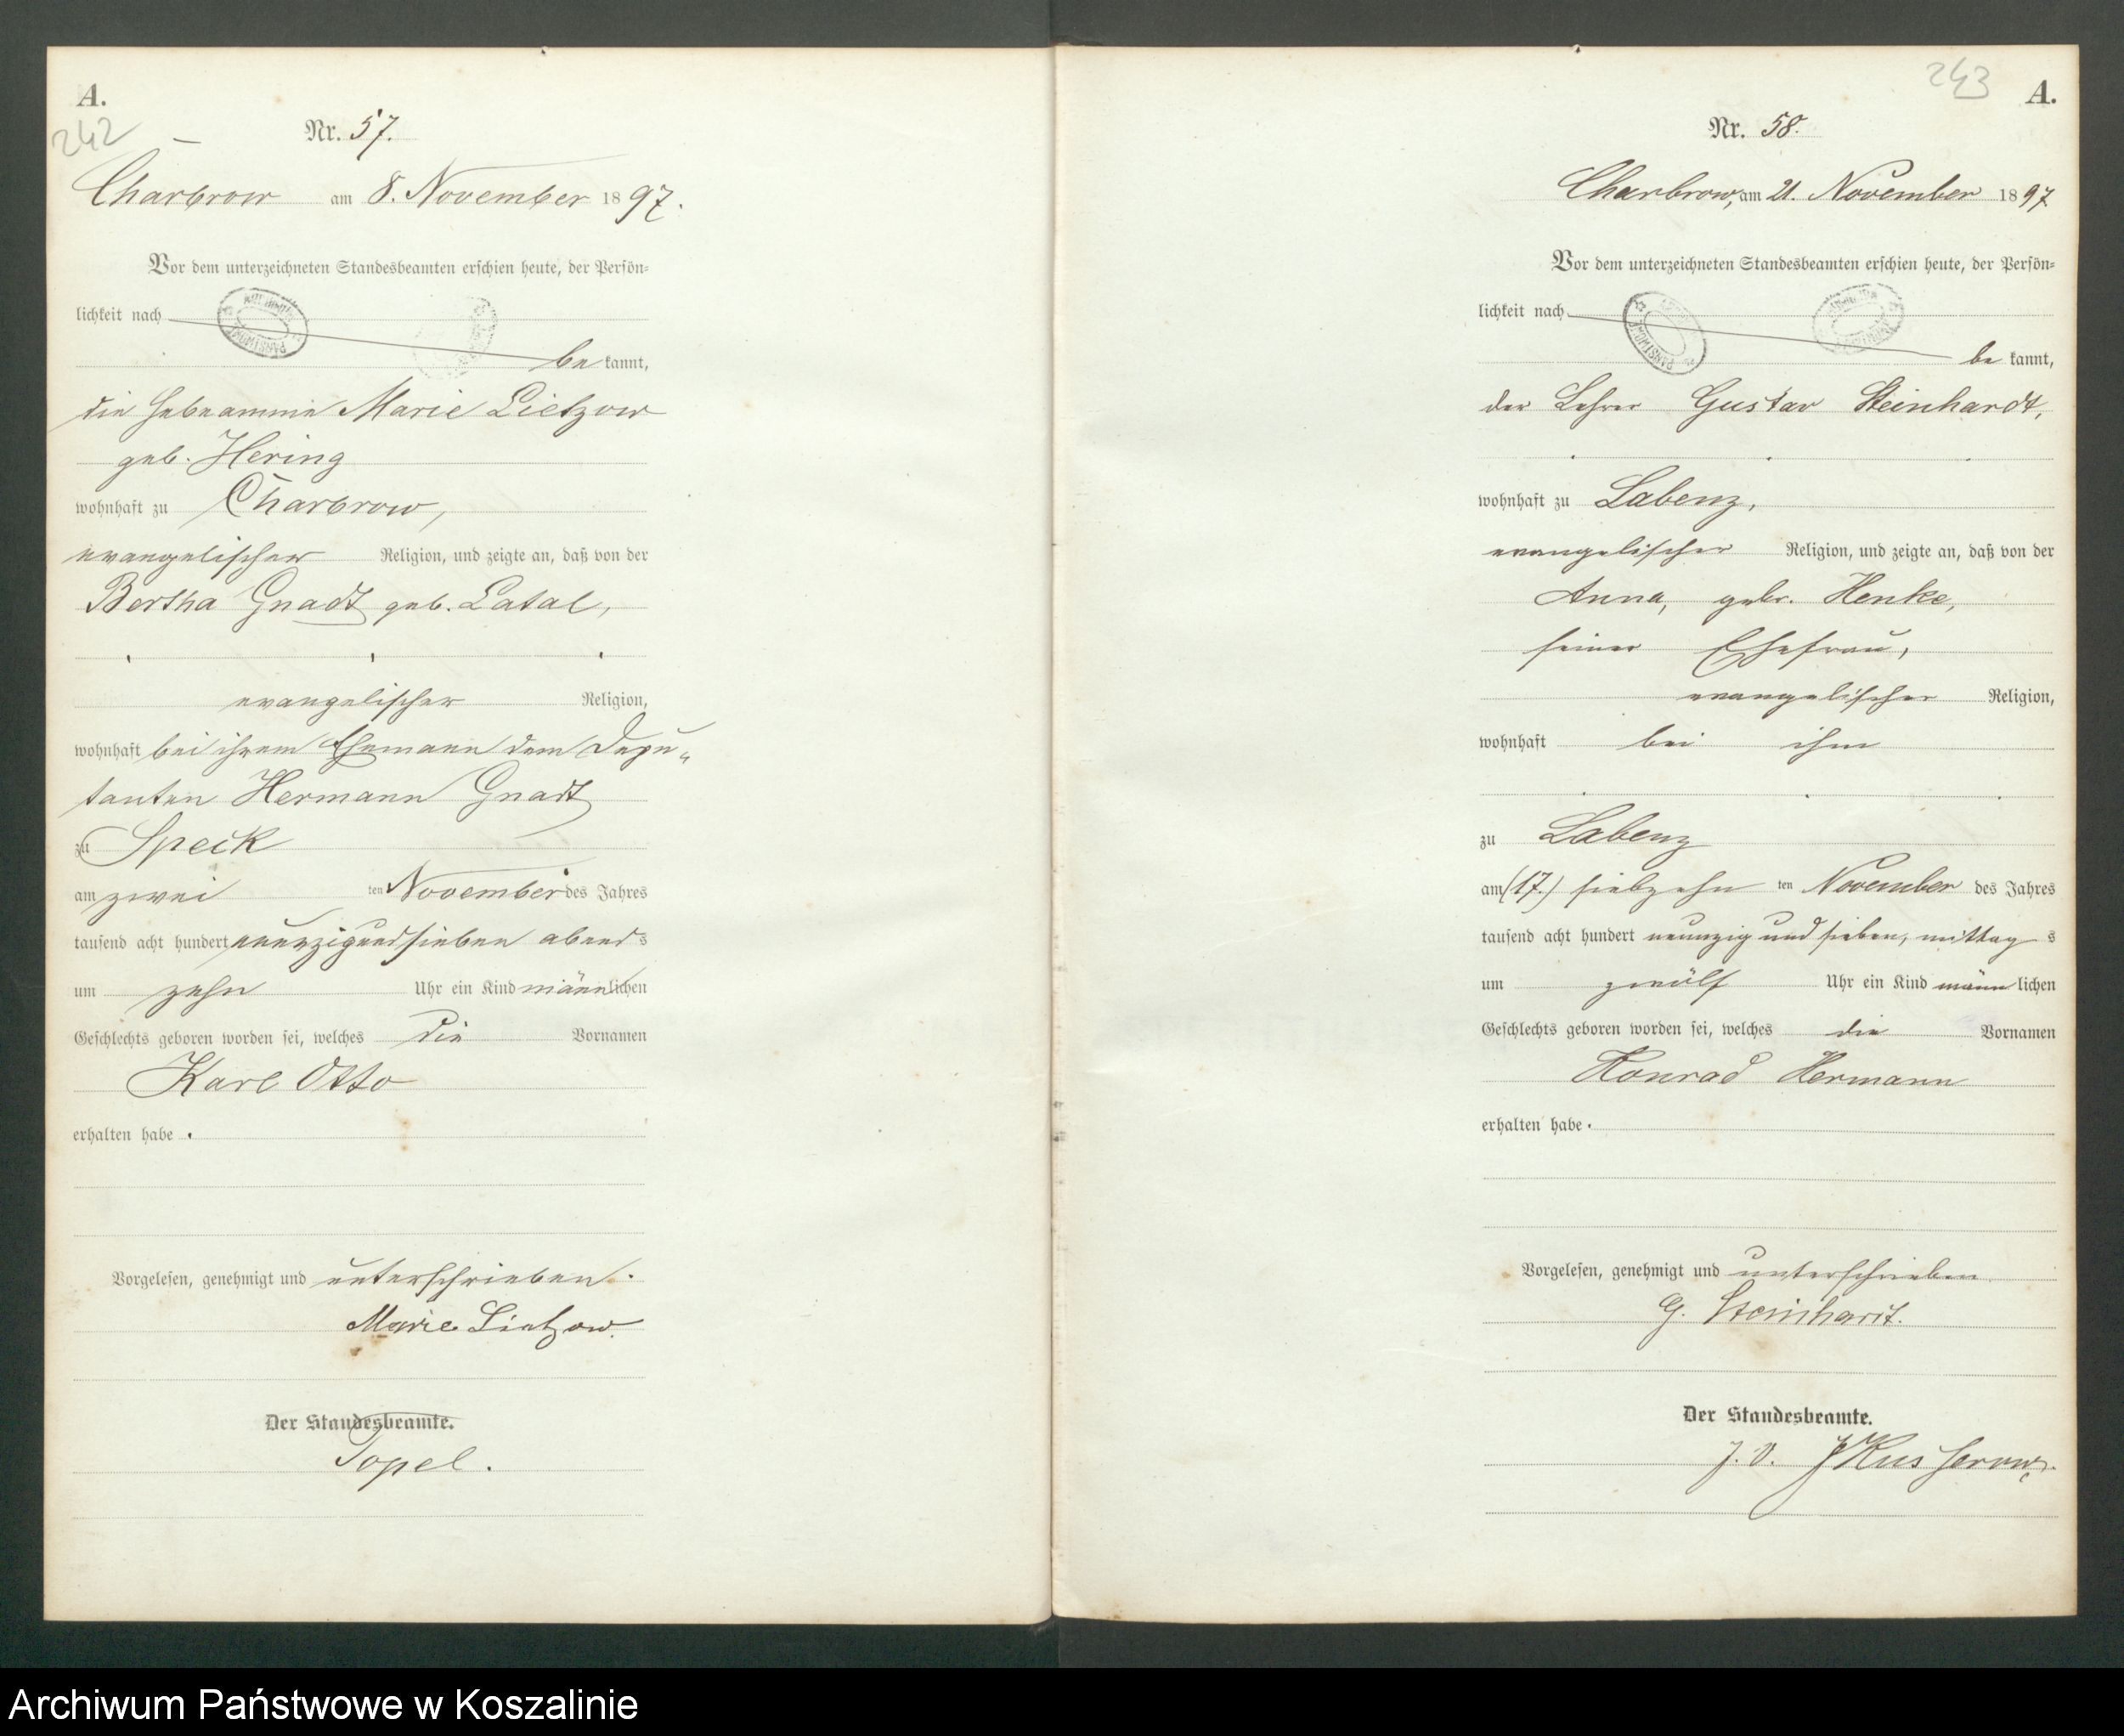 A.
242
Nr. 57.
Charbrow am 8. November 1897.
Vor dem unterzeichneten Standesbeamten erschien heute, der Persön-
lichkeit nach
be kannt,
die Hebeamme Marie Lietzow
geb. Hering
wohnhaft zu Charbrow,
evangelischer Religion, und zeigte an, daß von der
Bertha Gnadt geb. Latal,
evangelischer Religion,
wohnhaft bei ihrem Ehemann dem Depu-
tanten Hermann Gnadt
zu Speck
am zwei ten November des Jahres
tausend acht hundert neunzigundsieben abends
um zehn Uhr ein Kind männlichen
Geschlechts geboren worden sei, welches die Vornamen
Karl Otto
erhalten habe.
Vorgelesen, genehmigt und unterschrieben.
Marie Lietzow.
Der Standesbeamte.
Topel.
243
A.
Nr. 58.
Charbrow, am 21. November 1897
Vor dem unterzeichneten Standesbeamten erschien heute, der Persön-
lichkeit nach
be kannt,
der Lehrer Gustav Steinhardt,
wohnhaft zu Labenz,
evangelischer Religion, und zeigte an, daß von der
Anna, gebr. Henke,
seiner Ehefrau,
evangelischer Religion,
wohnhaft bei ihm
zu Labenz
am (17.) siebzehn ten November des Jahres
tausend acht hundert neunzig und sieben, mittag s
um zwölf Uhr ein Kind männlichen
Geschlechts geboren worden sei, welches die Vornamen
Konrad Hermann
erhalten habe.
Vorgelesen, genehmigt und unterschrieben
G. Steinhardt.
Der Standesbeamte.
J. V.
Archiwum Państwowe w Koszalinie